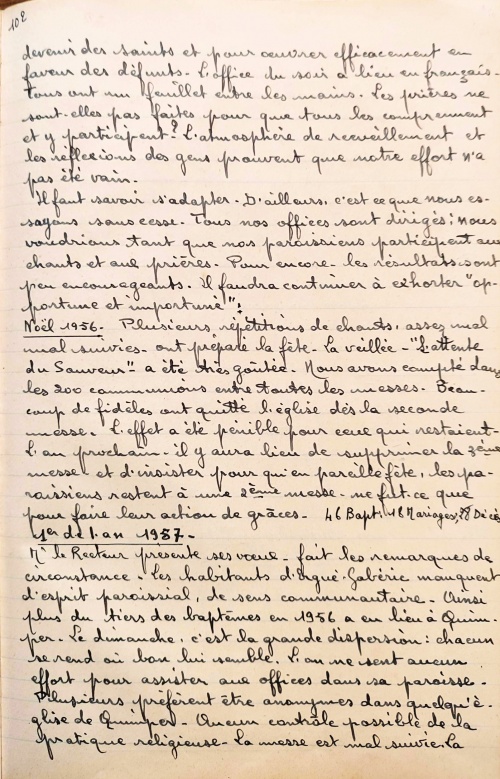 102
devenir des saints et pour œuvrer efficacement en
faveur des défunts. L'office du soir a lieu en français.
Tous ont un feuillet entre les mains. Les prières ne
sont-elles pas faites pour que tous les comprennent
et y participent? L'atmosphère de recueillement et
les réflexions des gens prouvent que notre effort n'a
pas été vain.
Il faut savoir s'adapter. D'ailleurs, c'est ce que nous es-
sayons sans cesse. Tous nos offices sont dirigés; nous
voudrions tant que nos paroissiens participent aux
chants et aux prières. Peu encore. les résultats sont
peu encourageants. Il faudra continuer à exhorter "op-
portune et importune".
Noël 1956. Plusieurs répétitions de chants, assez mal
mal suivies. ont préparé la fête. La veillée - "L'attente
du Sauveur" a été très goûtée. Nous avons compté dans
les 200 communions entre toutes les messes. Beau-
coup de fidèles ont quitté l'église dès la seconde
messe. L'effet a été pénible pour ceux qui restaient.
L'an prochain. il y aura lieu de supprimer la 3ème
messe et d'insister pour qu'en pareille fête, les pa-
roissiens restent à une 2ème messe. ne fut-ce que
pour faire leur action de grâces. 46 Bapt. 18 Mariages, Décès
1er de l'an 1957.
Mr le Recteur présente ses vœux. fait les remarques de
circonstance. Les habitants d'Ergué-Gabéric manquent
d'esprit paroissial, de sens communautaire. Ainsi
plus du tiers des baptêmes en 1956 a eu lieu à Quim-
per. Le dimanche, c'est la grande dispersion: chacun
se rend où bon lui semble. L'on ne sent aucun
effort pour assister aux offices dans sa paroisse.
Plusieurs préfèrent être anonymes dans quelqu'é-
glise de Quimper. Aucun contrôle possible de la
pratique religieuse. La messe est mal suivie. La